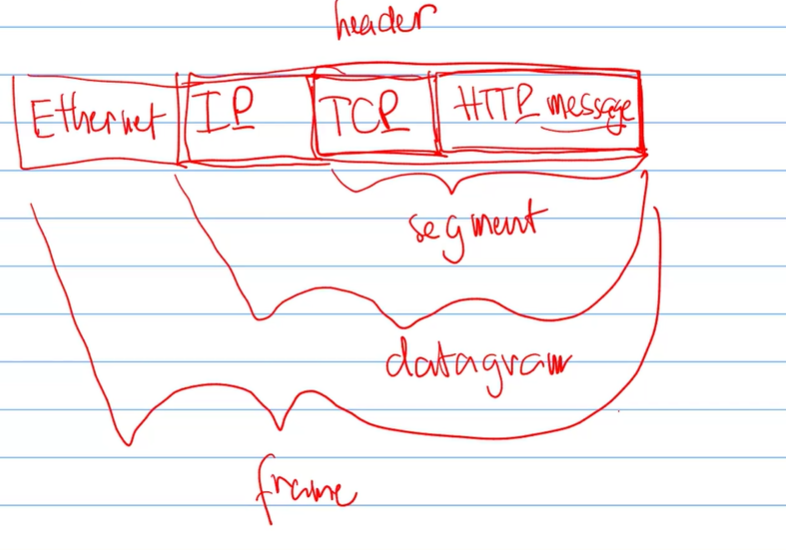 header
Ethernet IP TCP HTTP message
segment
datagram
frame